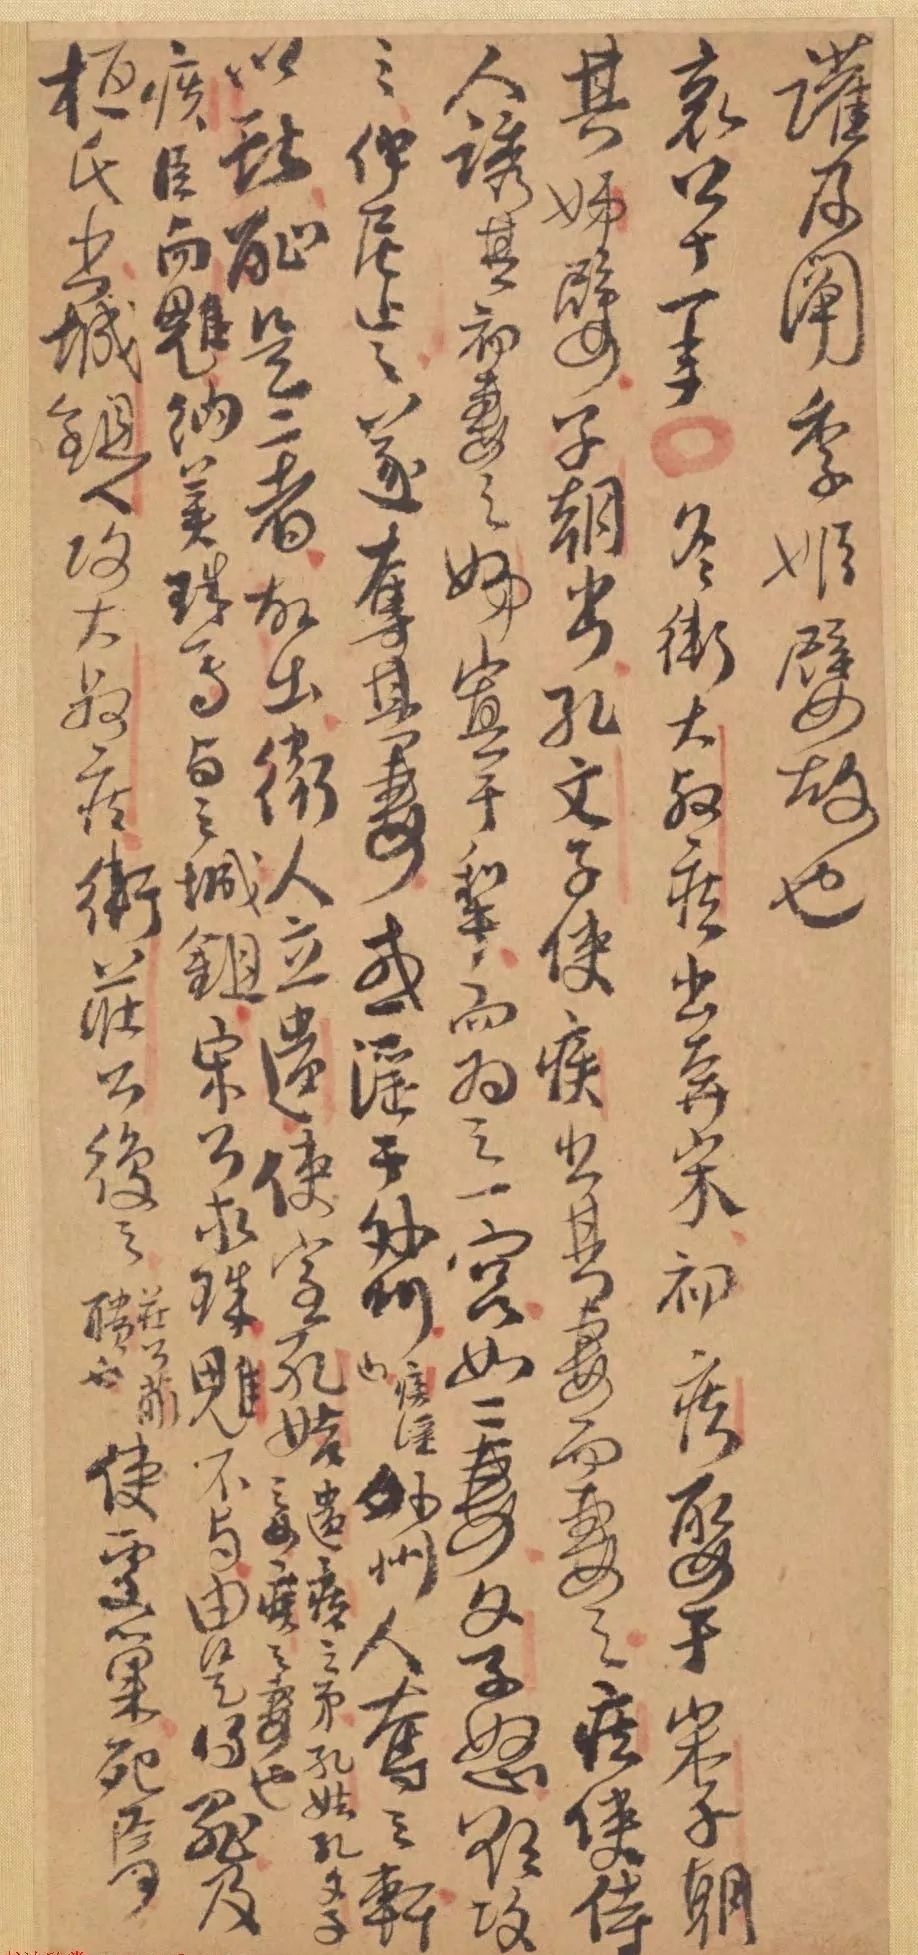 讙及闡季姬嬖故也
哀公十一年冬衛大叔疾出奔宋初疾娶于宋子朝
其娣嬖子朝出孔文子使疾出其妻而妻之疾使侍
人誘其初妻之娣寘于犂而爲之一宮如二妻文子怒欲攻
之仲尼止之遂奪其妻或淫于外州疾淫外州人奪之軒
以獻恥是二者故出衛人立遺使室孔姞遺疾之弟孔姞孔文子之女疾之妻也
疾臣向魋納美珠焉與之城鉏宋公求珠魋不與由是得罪及
桓氏出城鉏人攻大叔疾衛莊公復之莊公蒯聵也使處巢死焉